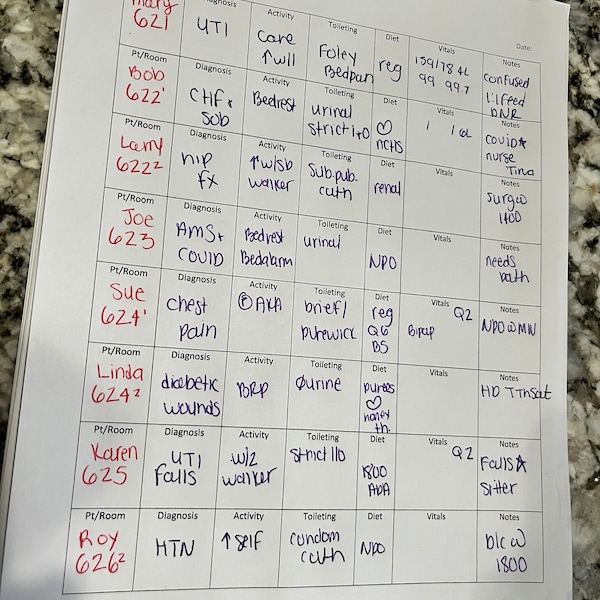 Mary
621
Diagnosis
UTI
Activity
Care
↑w/1
Toileting
Foley
Bedpan
Diet
reg
Vitals
159/78 4L
99 99.7
Date:
Notes
confused
DNR
Pt/Room
Bob
622¹
Diagnosis
CHF &
SOB
Activity
Bedrest
Toileting
urinal
strict I+O
Diet
♡
NCHS
Vitals
Notes
covid★
nurse
Tina
Pt/Room
Larry
622²
Diagnosis
hip
fx
Activity
↑w/SB
walker
Toileting
Sub.pub.
cath
Diet
renal
Vitals
Notes
surg @
1400
Pt/Room
Joe
623
Diagnosis
AMS+
COVID
Activity
Bedrest
Bedalarm
Toileting
urinal
Diet
NPO
Vitals
Notes
needs
bath
Pt/Room
Sue
624¹
Diagnosis
chest
pain
Activity
AKA
Toileting
brief/
purewick
Diet
reg
Q6
BS
Vitals
Q2
Bipap
Notes
NPO @ MN
Pt/Room
Linda
624²
Diagnosis
diabetic
wounds
Activity
BRP
Toileting
Øurine
Diet
purees
♡
honey
th.
Vitals
Notes
HD TThSat
Pt/Room
Karen
625
Diagnosis
UTI
Falls
Activity
w/2
walker
Toileting
strict I/O
Diet
1800
ADA
Vitals
Q2
Notes
Falls★
sitter
Pt/Room
Roy
626²
Diagnosis
HTN
Activity
↑self
Toileting
condom
cath
Diet
NPO
Vitals
Notes
D/C @
1800